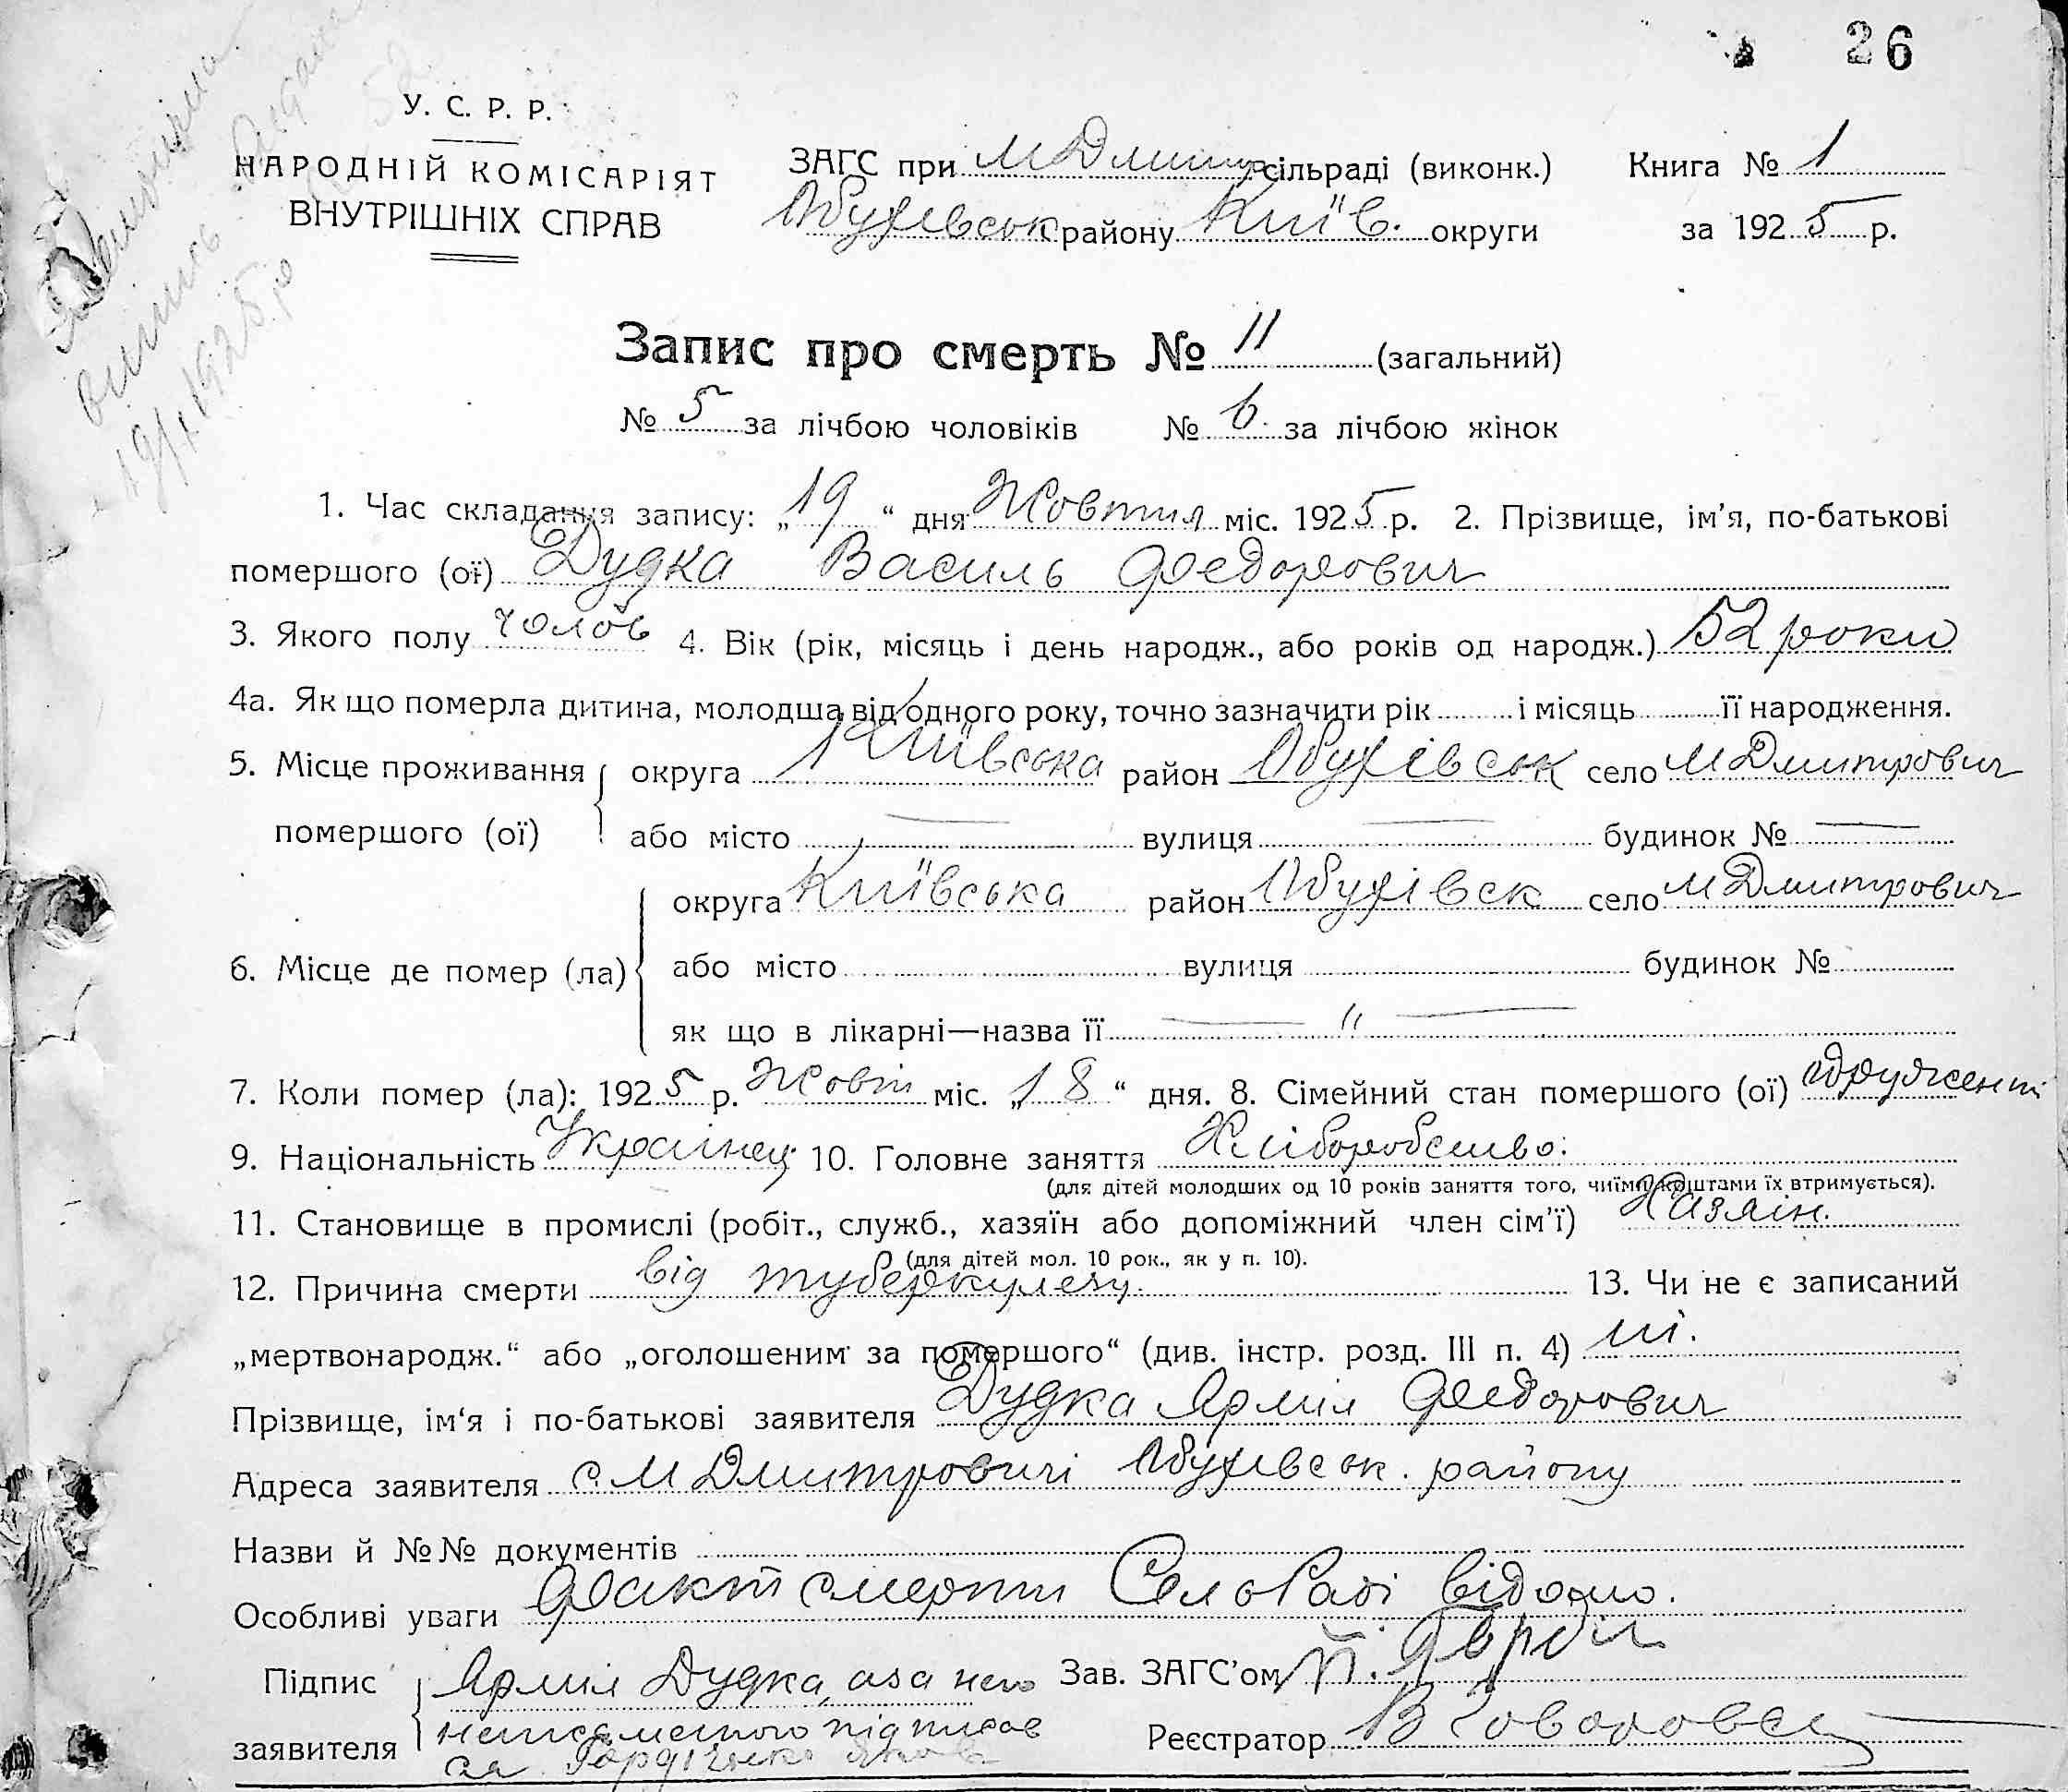 26
У. С. Р. Р.
НАРОДНІЙ КОМІСАРІЯТ
ВНУТРІШНІХ СПРАВ
ЗАГС при М Дмитр сільраді (виконк.) Книга № 1
Обухівськ району Київ. округи за 1925 р.
Запис про смерть № 11 (загальний)
№ 5 за лічбою чоловіків № 6 за лічбою жінок
1. Час складання запису: „19“ дня Жовтня міс. 1925 р. 2. Прізвище, ім’я, по-батькові
помершого (ої) Дудка Василь Федорович
3. Якого полу чолов 4. Вік (рік, місяць і день народж., або років од народж.) 52 роки
4а. Як що померла дитина, молодша від одного року, точно зазначити рік ......... і місяць ......... її народження.
5. Місце проживання помершого (ої) округа Київська район Обухівськ село М Дмитрович
або місто — вулиця — будинок № —
6. Місце де помер (ла) округа Київська район Обухівск село М Дмитрович
або місто вулиця будинок №
як що в лікарні—назва її — „ —
7. Коли помер (ла): 1925 р. Жовт міс. „18“ дня. 8. Сімейний стан помершого (ої) одружений
9. Національність Українец 10. Головне заняття Хліборобство.
(для дітей молодших од 10 років заняття того, чиїми коштами їх втримується).
11. Становище в промислі (робіт., служб., хазяїн або допоміжний член сім’ї) Хазяін.
(для дітей мол. 10 рок., як у п. 10).
12. Причина смерти від туберкулезу. 13. Чи не є записаний
„мертвонародж.“ або „оголошеним за помершого“ (див. інстр. розд. III п. 4) ні.
Прізвище, ім‘я і по-батькові заявителя Дудка Ярмія Федорович
Адреса заявителя с. М Дмитровичі Обухівськ. району
Назви й №№ документів
Особливі уваги Факт смерти СельРаді відомо.
Підпис заявителя Ярмія Дудка, а за него Зав. ЗАГС’ом
неписьменого підписав Реєстратор